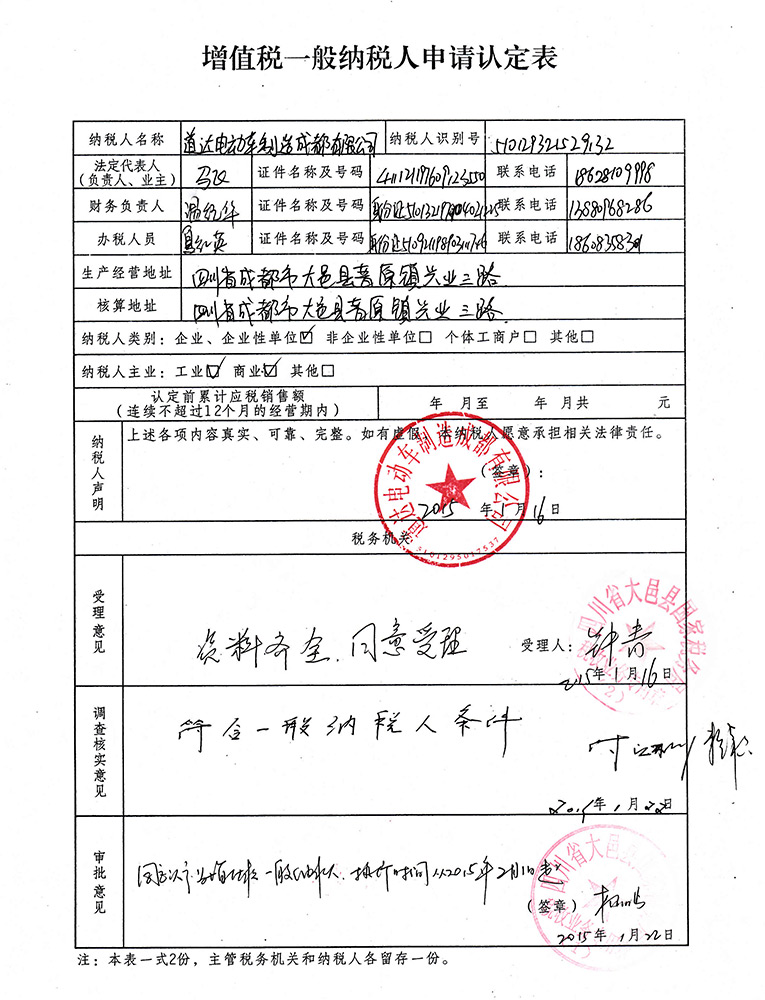 增值税一般纳税人申请认定表
纳税人名称 道达电动车制造成都有限公司 纳税人识别号 510129321529132
法定代表人
(负责人、业主) 证件名称及号码 联系电话 18628109998
财务负责人 温纪华 证件名称及号码 联系电话 13880968286
办税人员 证件名称及号码 联系电话
生产经营地址 四川省成都市大邑县晋原镇兴业三路
核算地址 四川省成都市大邑县晋原镇兴业三路
纳税人类别：企业、企业性单位☑ 非企业性单位□ 个体工商户□ 其他□
纳税人主业：工业☑ 商业☑ 其他□
认定前累计应税销售额
(连续不超过12个月的经营期内) 年 月至 年 月共 元
纳税人声明
上述各项内容真实、可靠、完整。如有虚假，本纳税人愿意承担相关法律责任。
(签章)：
2015年1月16日
道达电动车制造成都有限公司
5101295017537
税务机关
受理意见
资料齐全、同意受理 受理人：钟青
2015年1月16日
四川省大邑县国家税务局
(2)
调查核实意见
符合一般纳税人条件
2015年1月22日
审批意见
同意认定为增值税一般纳税人，执行时间从2015年2月1日起
(签章)
2015年1月22日
四川省大邑
(1)
注：本表一式2份，主管税务机关和纳税人各留存一份。